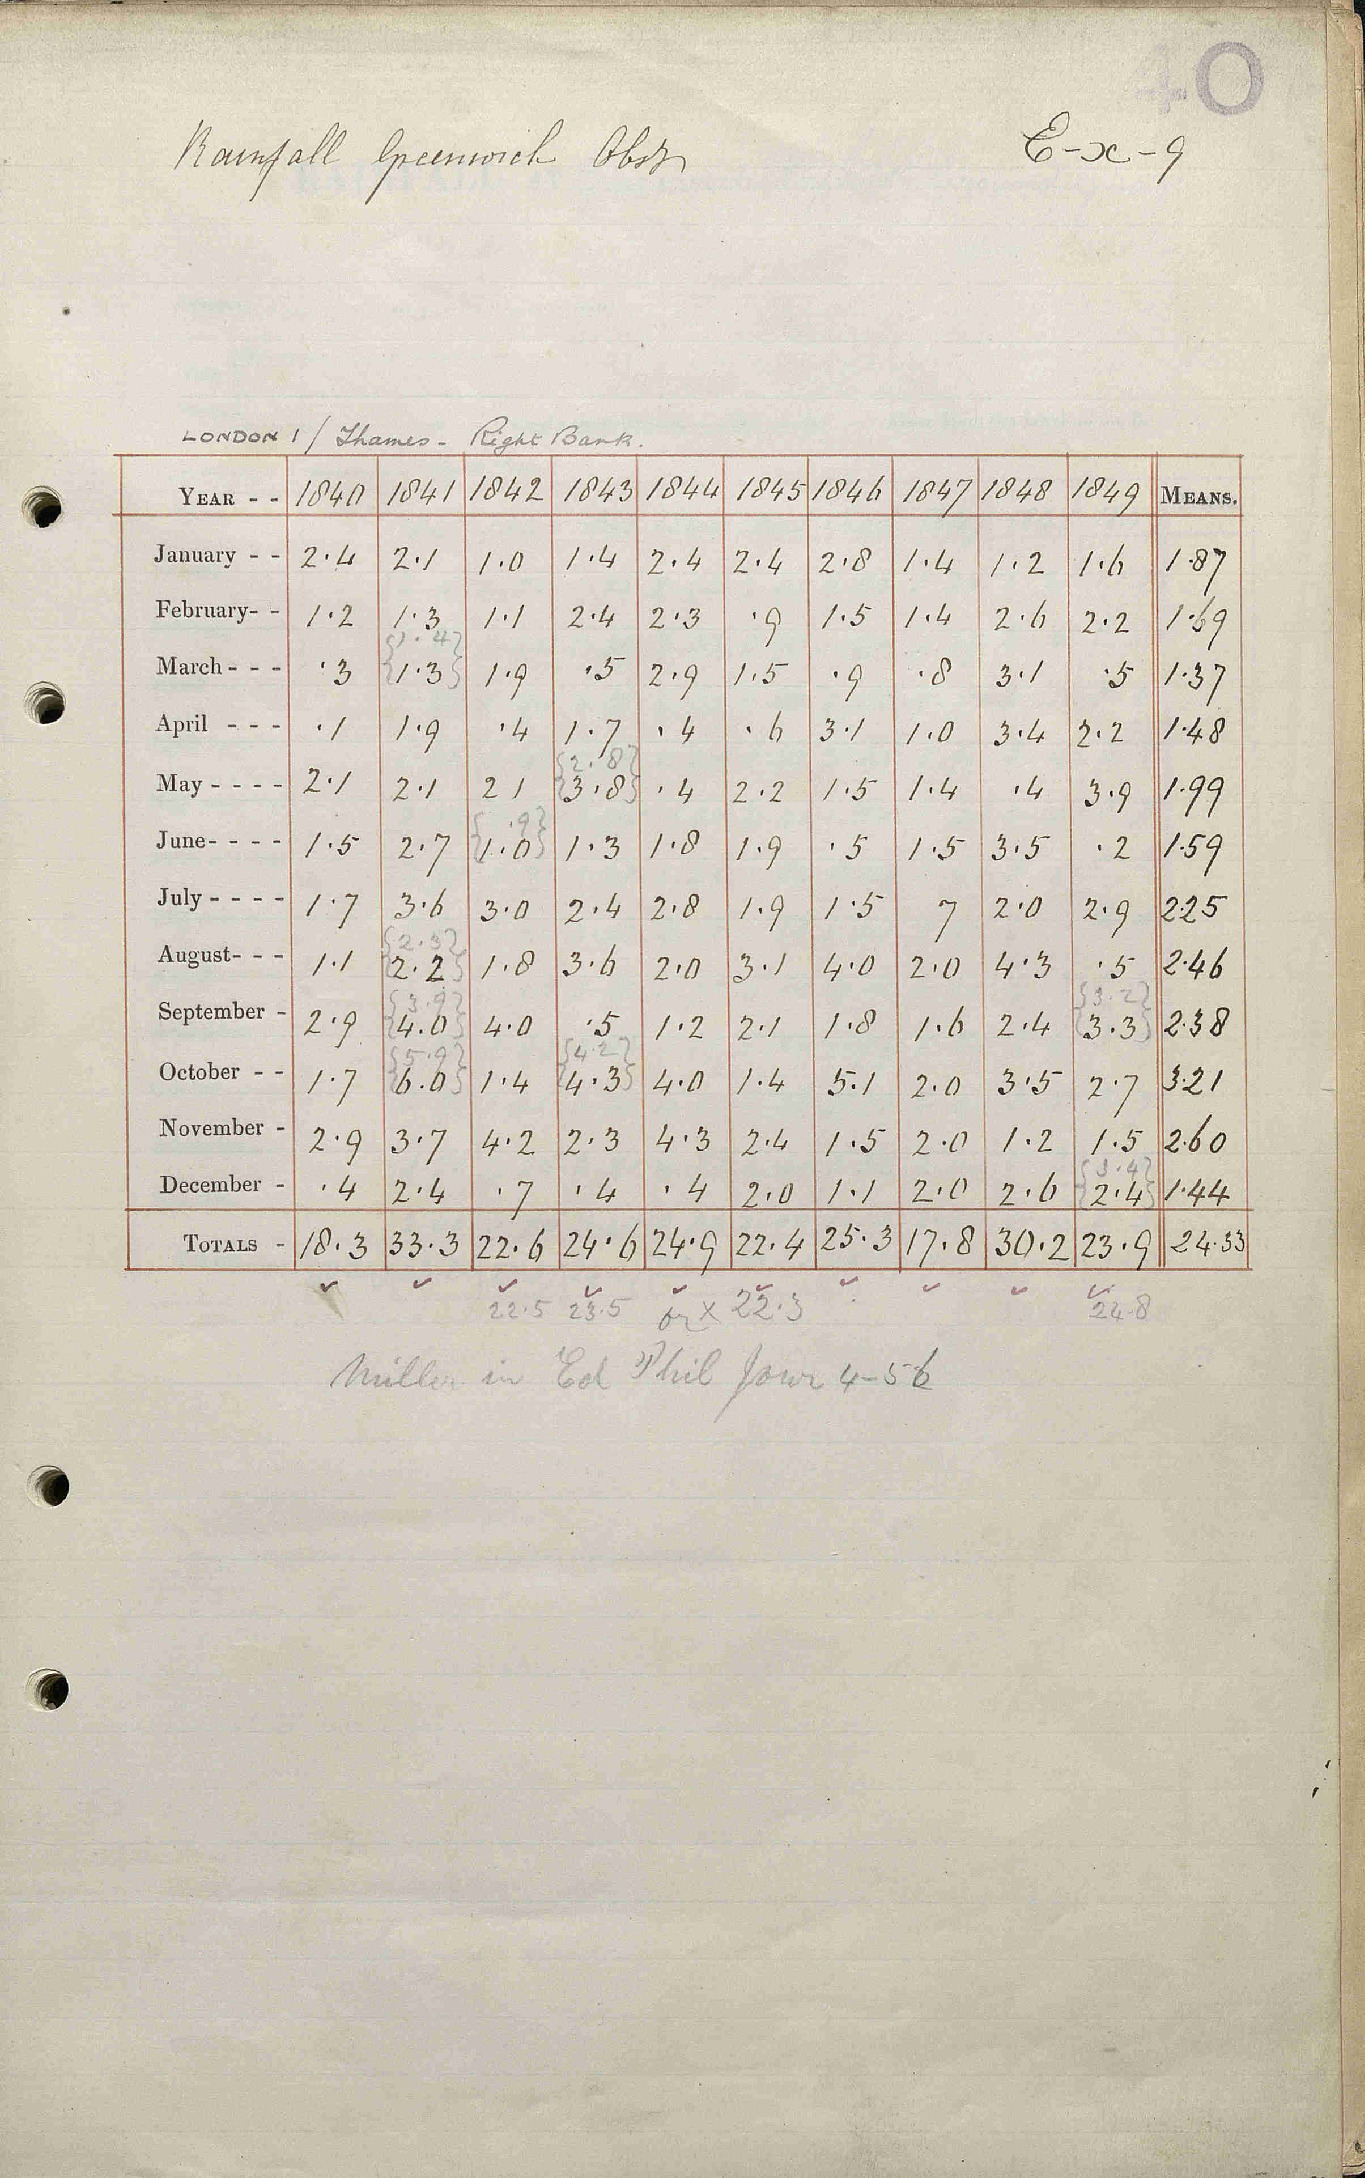 40
Rainfall Greenwich Obsy E-x-9
LONDON 1 / Thames - Right Bank.
YEAR - - 1840 1841 1842 1843 1844 1845 1846 1847 1848 1849 MEANS.
January - - 2.4 2.1 1.0 1.4 2.4 2.4 2.8 1.4 1.2 1.6 1.87
February- - 1.2 1.3 1.1 2.4 2.3 .9 1.5 1.4 2.6 2.2 1.69
{1.4}
March - - - .3 {1.3} 1.9 .5 2.9 1.5 .9 .8 3.1 .5 1.37
April - - - .1 1.9 .4 1.7 .4 .6 3.1 1.0 3.4 2.2 1.48
{2.8}
May - - - - 2.1 2.1 2 1 {3.8} .4 2.2 1.5 1.4 .4 3.9 1.99
{.9}
June- - - - 1.5 2.7 {1.0} 1.3 1.8 1.9 .5 1.5 3.5 .2 1.59
July - - - - 1.7 3.6 3.0 2.4 2.8 1.9 1.5 7 2.0 2.9 2.25
{2.3}
August- - - 1.1 {2.2} 1.8 3.6 2.0 3.1 4.0 2.0 4.3 .5 2.46
{3.9} {3.2}
September - 2.9 {4.0} 4.0 .5 1.2 2.1 1.8 1.6 2.4 {3.3} 2.38
{5.9} {4.2}
October - - 1.7 {6.0} 1.4 {4.3} 4.0 1.4 5.1 2.0 3.5 2.7 3.21
November - 2.9 3.7 4.2 2.3 4.3 2.4 1.5 2.0 1.2 1.5 2.60
{3.4}
December - .4 2.4 .7 .4 .4 2.0 1.1 2.0 2.6 {2.4} 1.44
TOTALS - 18.3 33.3 22.6 24.6 24.9 22.4 25.3 17.8 30.2 23.9 24.33
22.5 23.5 or x 22.3 24.8
Miller in Ed Phil Jour 4-56